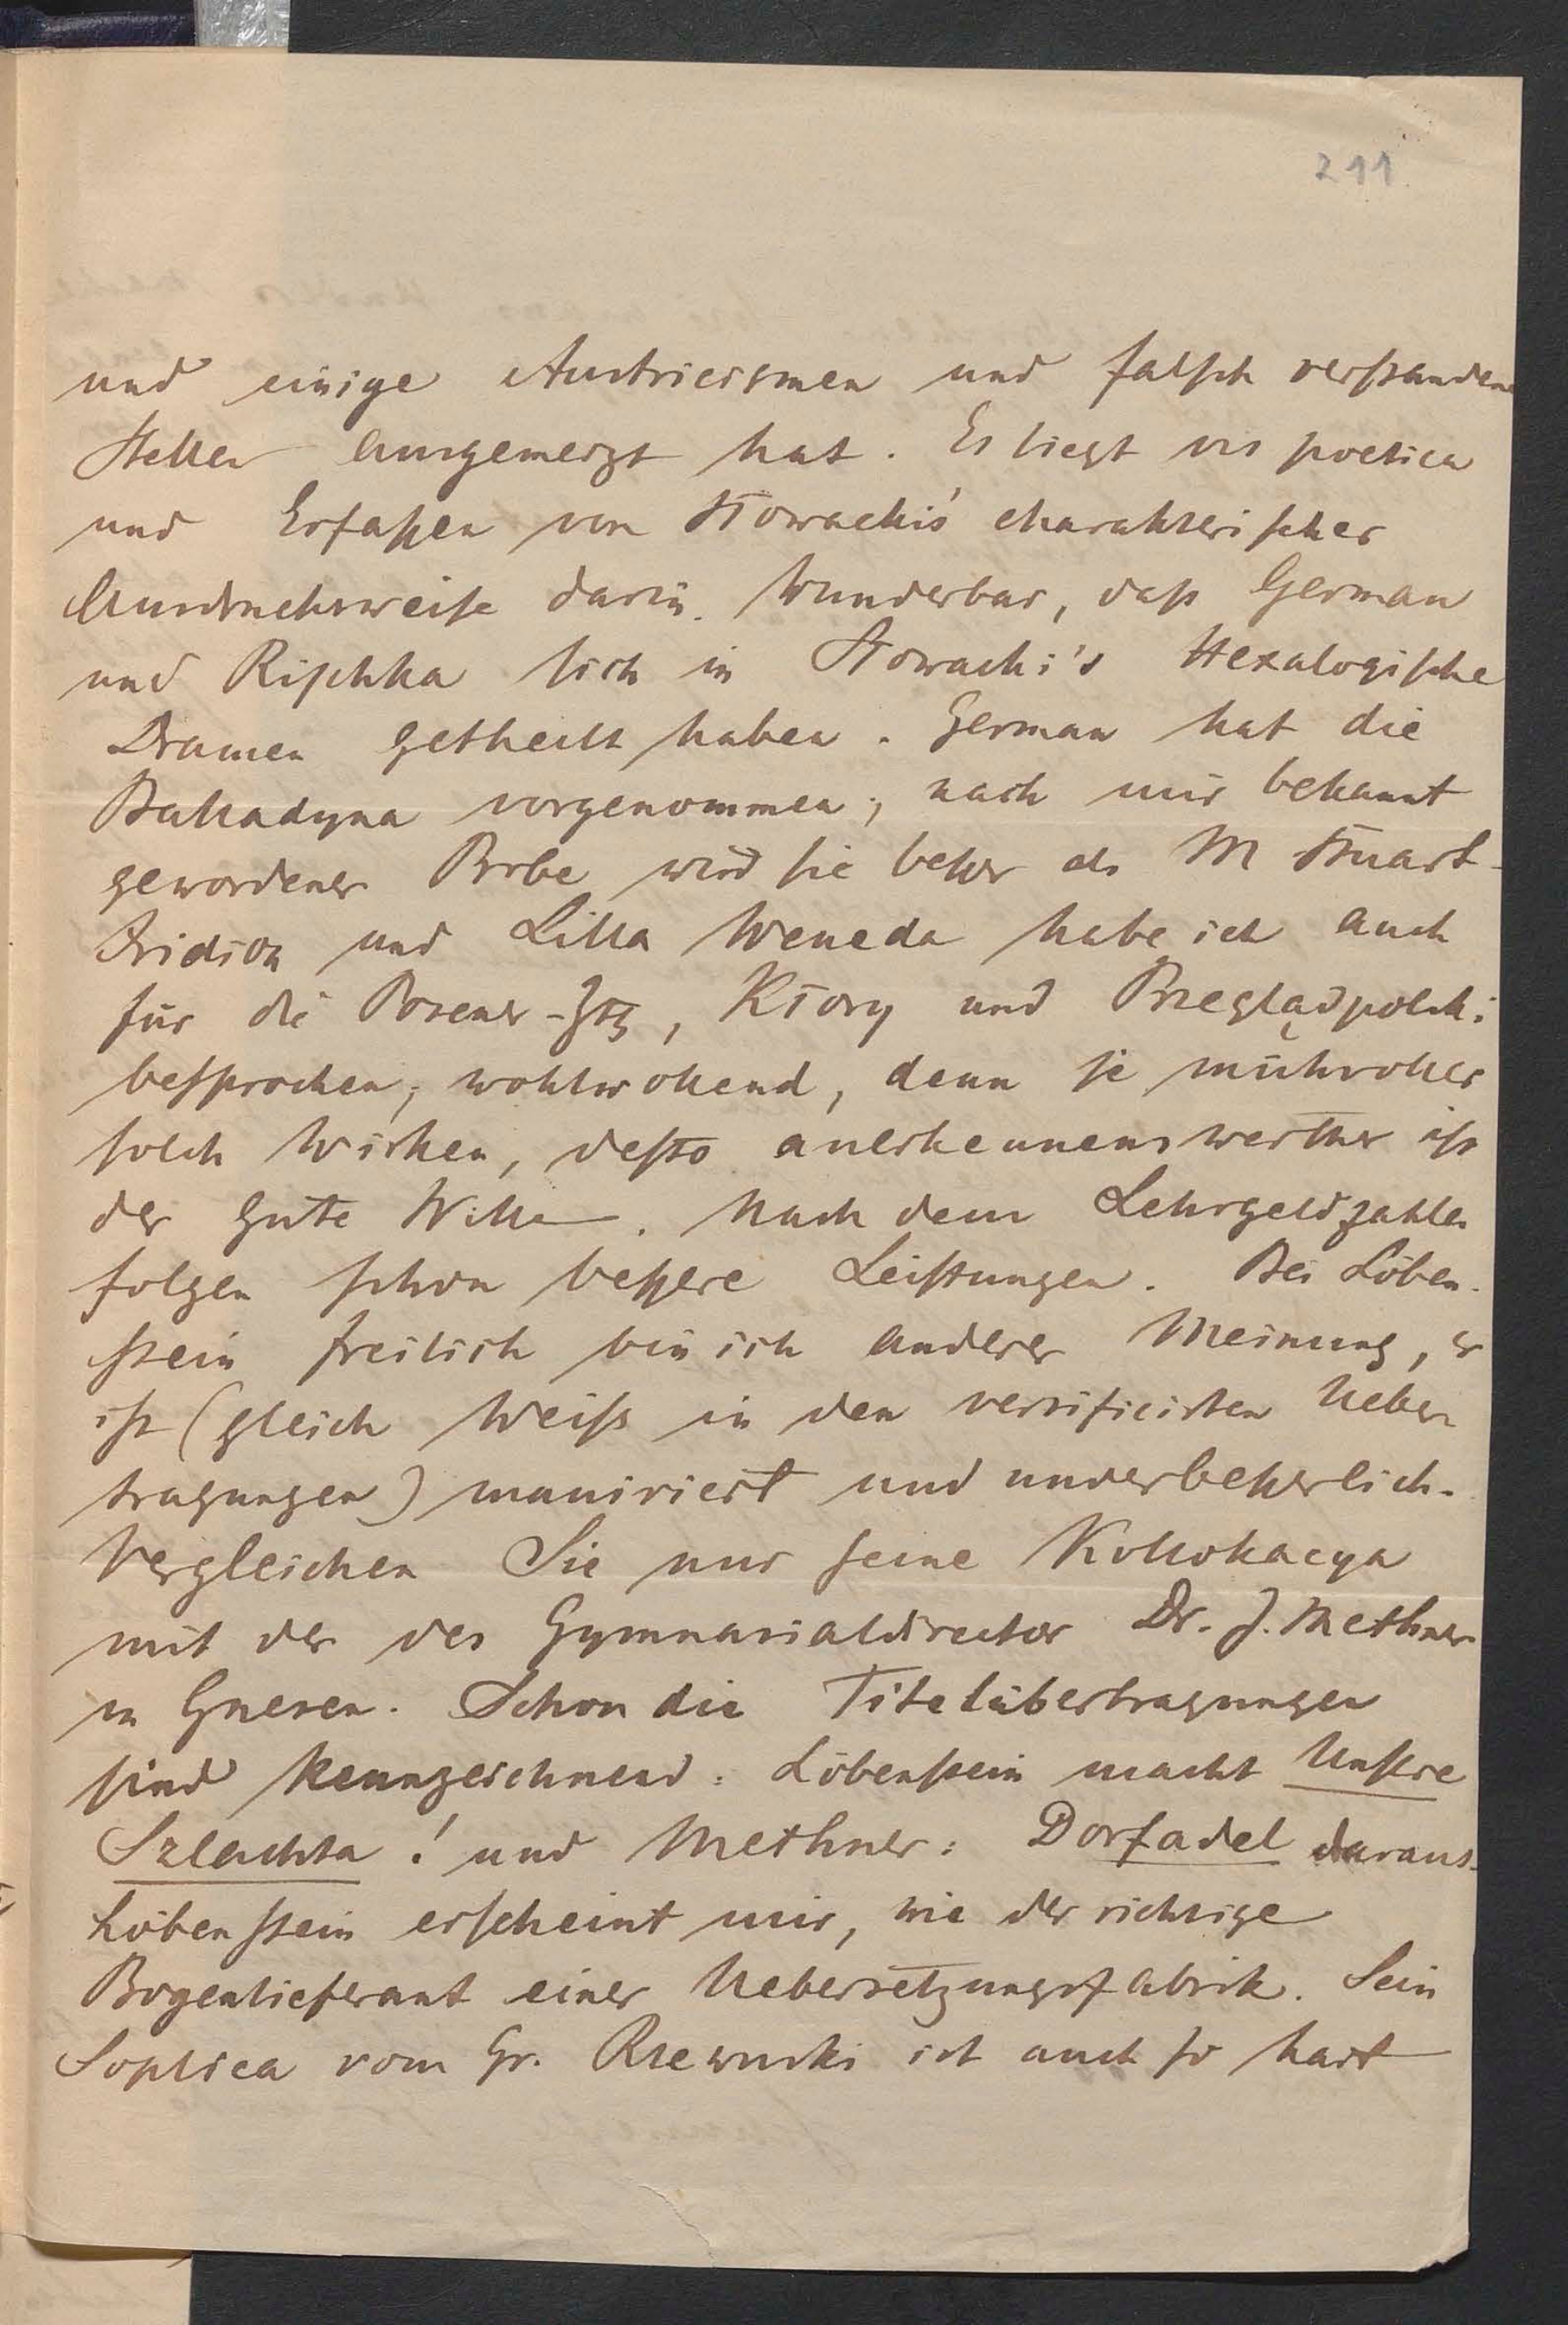 211
und einige Austricismen und falsch verstandene
Stellen ausgemerzt hat. Es liegt vis poetica
und Erfaßen von Słowacki's charakterischer
Ausdrucksweise darin. Wunderbar, daß German
und Rischka sich in Słowacki's Hexalogische
Dramen getheilt haben. German hat die
Balladyna vorgenommen; nach mir bekannt
gewordener Probe wird sie beßer als M Stuart.
Iridion und Lilla Weneda habe ich auch
für die Posener-Ztg, Kłosy und Przegląd polski
besprochen; wohlwollend, denn je mühvoller
solch Wirken, desto anerkennenswerther ist
der gute Wille. Nach dem Lehrgeldzahlen
folgen schon beßere Leistungen. Bei Löben-
stein freilich bin ich anderer Meinung, er
ist (gleich Weiss in den versificirten Ueber-
tragungen) manirirt und unverbeßerlich.
Vergleichen Sie nur seine Kollokacya
mit der des Gymnasialdirector Dr. J. Methner
in Gnesen. Schon die Titelübertragungen
sind kennzeichnend: Löbenstein macht Unsere
Szlachta! und Methner: Dorfadel daraus.
Löbenstein erscheint mir, wie der richtige
Bogenlieferant einer Uebersetzungsfabrik. Sein
Soplica vom Gr. Rzewuski ist auch so hart